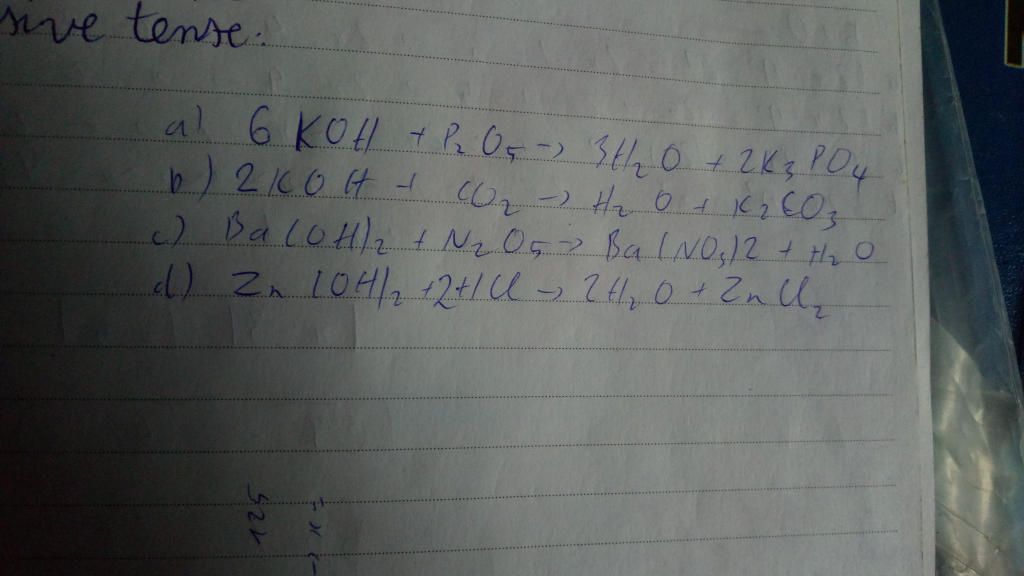 sive tense:
a) 6 KOH + P₂O₅ → 3H₂O + 2K₃PO₄
b) 2KOH + CO₂ → H₂O + K₂CO₃
c) Ba(OH)₂ + N₂O₅ → Ba(NO₃)2 + H₂O
d) Zn(OH)₂ + 2HCl → 2H₂O + ZnCl₂